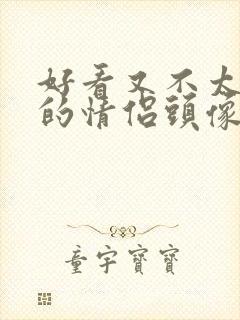 好看又不大
的情侣頭像
童宇寶寶